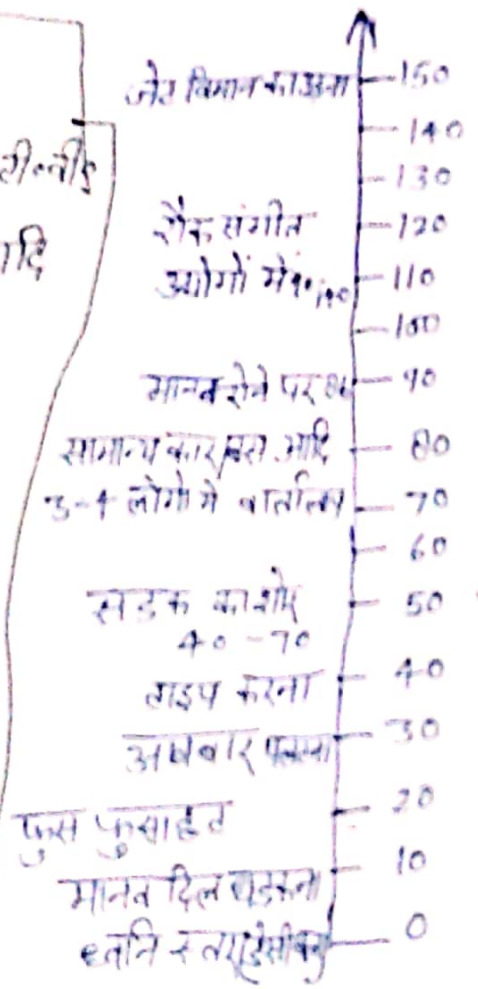 जेट विमान का उडना — 150
— 140
— 130
टी०वी०
रौक संगीत — 120
ादि
उद्योगों में — 110
— 100
मानव रोने पर — 90
सामान्य कार, बस आदि — 80
3-4 लोगो मे वार्तालाप — 70
— 60
सडक का शोर — 50
40-70
टाइप करना — 40
अखबार — 30
फुस फुसाहट — 20
मानव दिल धडकना — 10
ध्वनि स्तर (डेसीबल) — 0